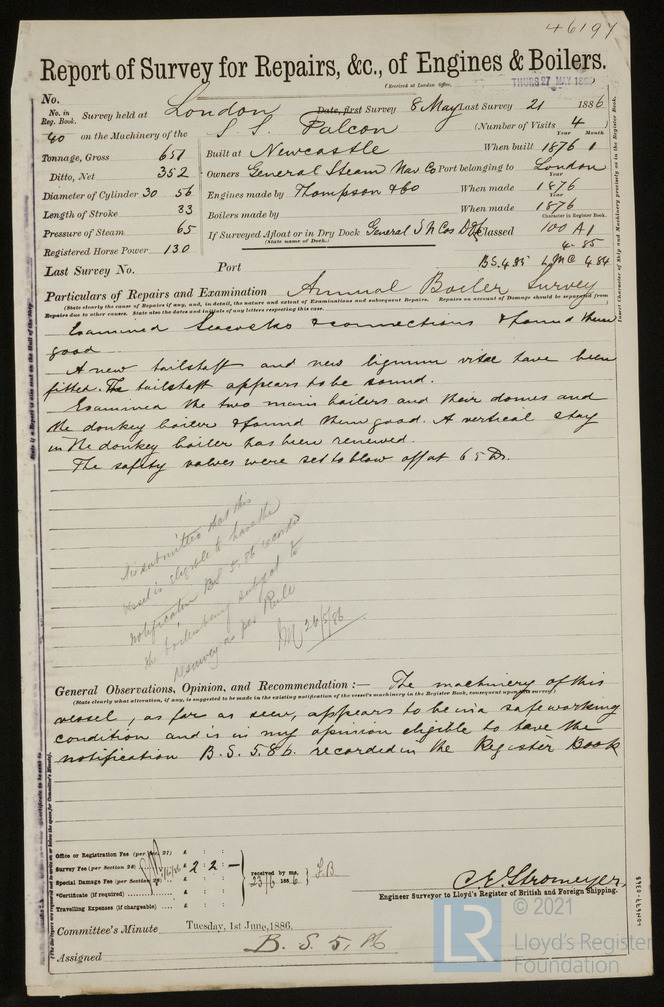 46197
Report of Survey for Repairs, &c., of Engines & Boilers.
(Received at London Office,
THURS 27 MAY 188
No.
No. in Reg. Book. Survey held at London Date, first Survey 8 May Last Survey 21 1886
40 on the Machinery of the S.S. Falcon (Number of Visits 4
Year Month
Tonnage, Gross 651 Built at Newcastle When built 1876 1
Ditto, Net 352 Owners General Steam Nav Co Port belonging to London
Year
Diameter of Cylinder 30 56 Engines made by Thompson & Co When made 1876
Length of Stroke 33 Boilers made by When made 1876
Character in Register Book.
Pressure of Steam 65 If Surveyed Afloat or in Dry Dock General S N Cos Classed 100 A1
(State name of Dock.) 4-85
Registered Horse Power 130
Last Survey No. Port B.S. 4.85 L.M.C 4 84
Particulars of Repairs and Examination Annual Boiler Survey
(State clearly the cause of Repairs if any, and, in detail, the nature and extent of Examinations and subsequent Repairs. Repairs on account of Damage should be separated from
Repairs due to other causes. State also the dates and initials of any letters respecting this case.
Examined Seacocks & connections & found them
good
A new tailshaft and new lignum vitae have been
fitted. The tailshaft appears to be sound.
Examined the two main boilers and their domes and
the donkey boiler & found them good. A vertical stay
in the donkey boiler has been renewed.
The safety valves were set to blow off at 65 lbs.
submitted that this
vessel is eligible to have the
notification BS 5.86 recorded
the boilers being subject to
survey as per Rule
26/5/86
General Observations, Opinion, and Recommendation :— The machinery of this
(State clearly what alteration, if any, is suggested to be made in the existing notification of the vessel's machinery in the Register Book, consequent upon this survey.)
vessel, as far as seen, appears to be in a safe working
condition and is in my opinion eligible to have the
notification B.S. 5.86. recorded in the Register Book
Office or Registration Fee (per Sec. 27) £ : :
Survey Fee (per Section 28) £ 2 : 2 : —
Special Damage Fee (per Section 28) £ : : received by me, 23/6 1886
*Certificate (if required) £ : :
Travelling Expenses (if chargeable) £ : :
C.E. Stromeyer
Engineer Surveyor to Lloyd's Register of British and Foreign Shipping.
Committee's Minute Tuesday, 1st June, 1886.
Assigned B. S. 5, 86
LR © 2021
Lloyd's Register
Foundation